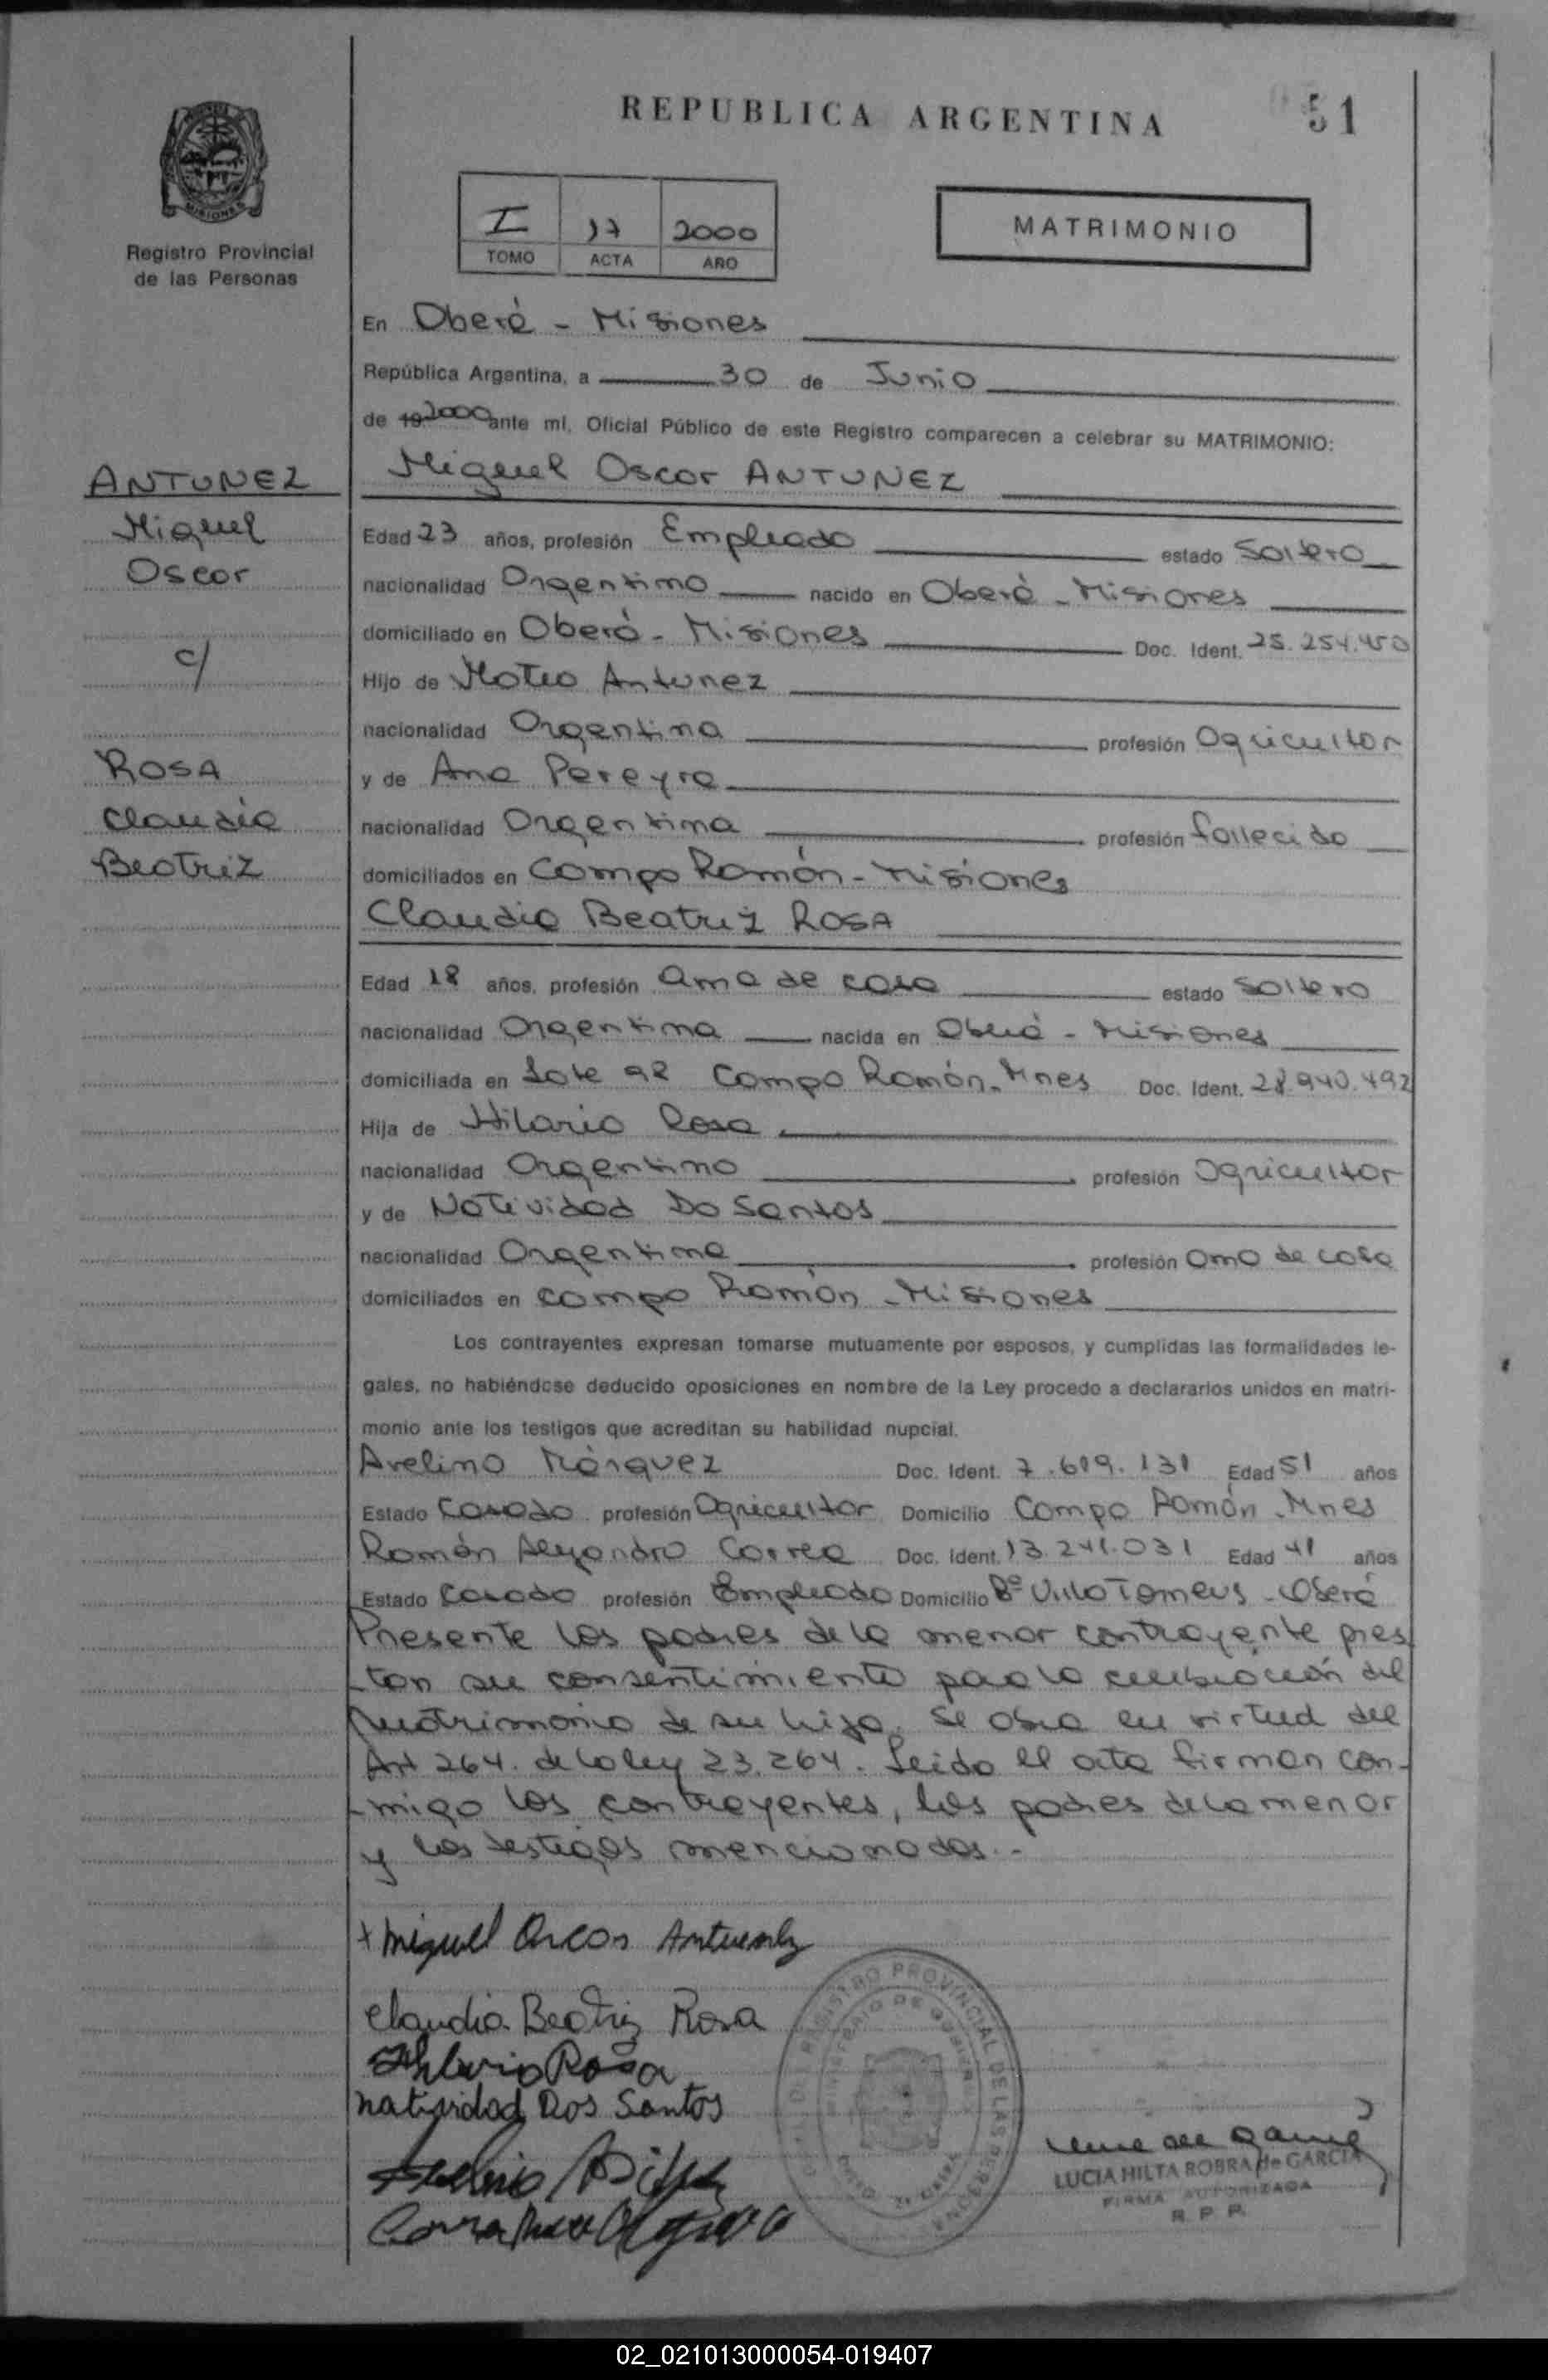 REPUBLICA ARGENTINA
51
MISIONES
Registro Provincial
de las Personas
I 17 2000
TOMO ACTA AÑO
MATRIMONIO
En Oberá - Misiones
República Argentina, a 30 de Junio
de 19 2000 ante mí, Oficial Público de este Registro comparecen a celebrar su MATRIMONIO:
ANTUNEZ
Miguel
Oscar
c/
ROSA
Claudia
Beatriz
Miguel Oscar ANTUNEZ
Edad 23 años, profesión Empleado estado Soltero
nacionalidad Argentino nacido en Oberá - Misiones
domiciliado en Oberá - Misiones Doc. Ident. 25.254.450
Hijo de Mateo Antunez
nacionalidad Argentina profesión Agricultor
y de Ana Pereyra
nacionalidad Argentina profesión fallecida
domiciliados en Campo Ramón - Misiones
Claudia Beatriz ROSA
Edad 18 años, profesión ama de casa estado Soltera
nacionalidad Argentina nacida en Oberá - Misiones
domiciliada en Lote 92 Campo Ramón - Mnes Doc. Ident. 28.940.492
Hija de Hilario Rosa
nacionalidad Argentino profesión Agricultor
y de Natividad Do Santos
nacionalidad Argentina profesión ama de casa
domiciliados en Campo Ramón - Misiones
Los contrayentes expresan tomarse mutuamente por esposos, y cumplidas las formalidades le-
gales, no habiéndose deducido oposiciones en nombre de la Ley procedo a declararlos unidos en matri-
monio ante los testigos que acreditan su habilidad nupcial.
Avelino Márquez Doc. Ident. 7.619.131 Edad 51 años
Estado Casado profesión Agricultor Domicilio Campo Ramón - Mnes
Román Alejandro Correa Doc. Ident. 13.241.031 Edad 41 años
Estado Casado profesión Empleado Domicilio Bº Villa Tomeus - Oberá
Presente los padres de la menor contrayente pres
-tan su consentimiento para la celebración del
Matrimonio de su hija. Se obra en virtud del
Art 264. de la ley 23.264. Leida el acta firman con-
-migo los contrayentes, los padres de la menor
y los testigos mencionados.-
+ Miguel Oscar Antunez
Claudia Beatriz Rosa
Hilario Rosa
natividad Dos Santos
REGISTRO PROVINCIAL DE LAS PERSONAS
MINISTERIO DE GOBIERNO
LUCIA HILTA ROBRA de GARCIA
FIRMA AUTORIZADA
R. P. P.
02_021013000054-019407